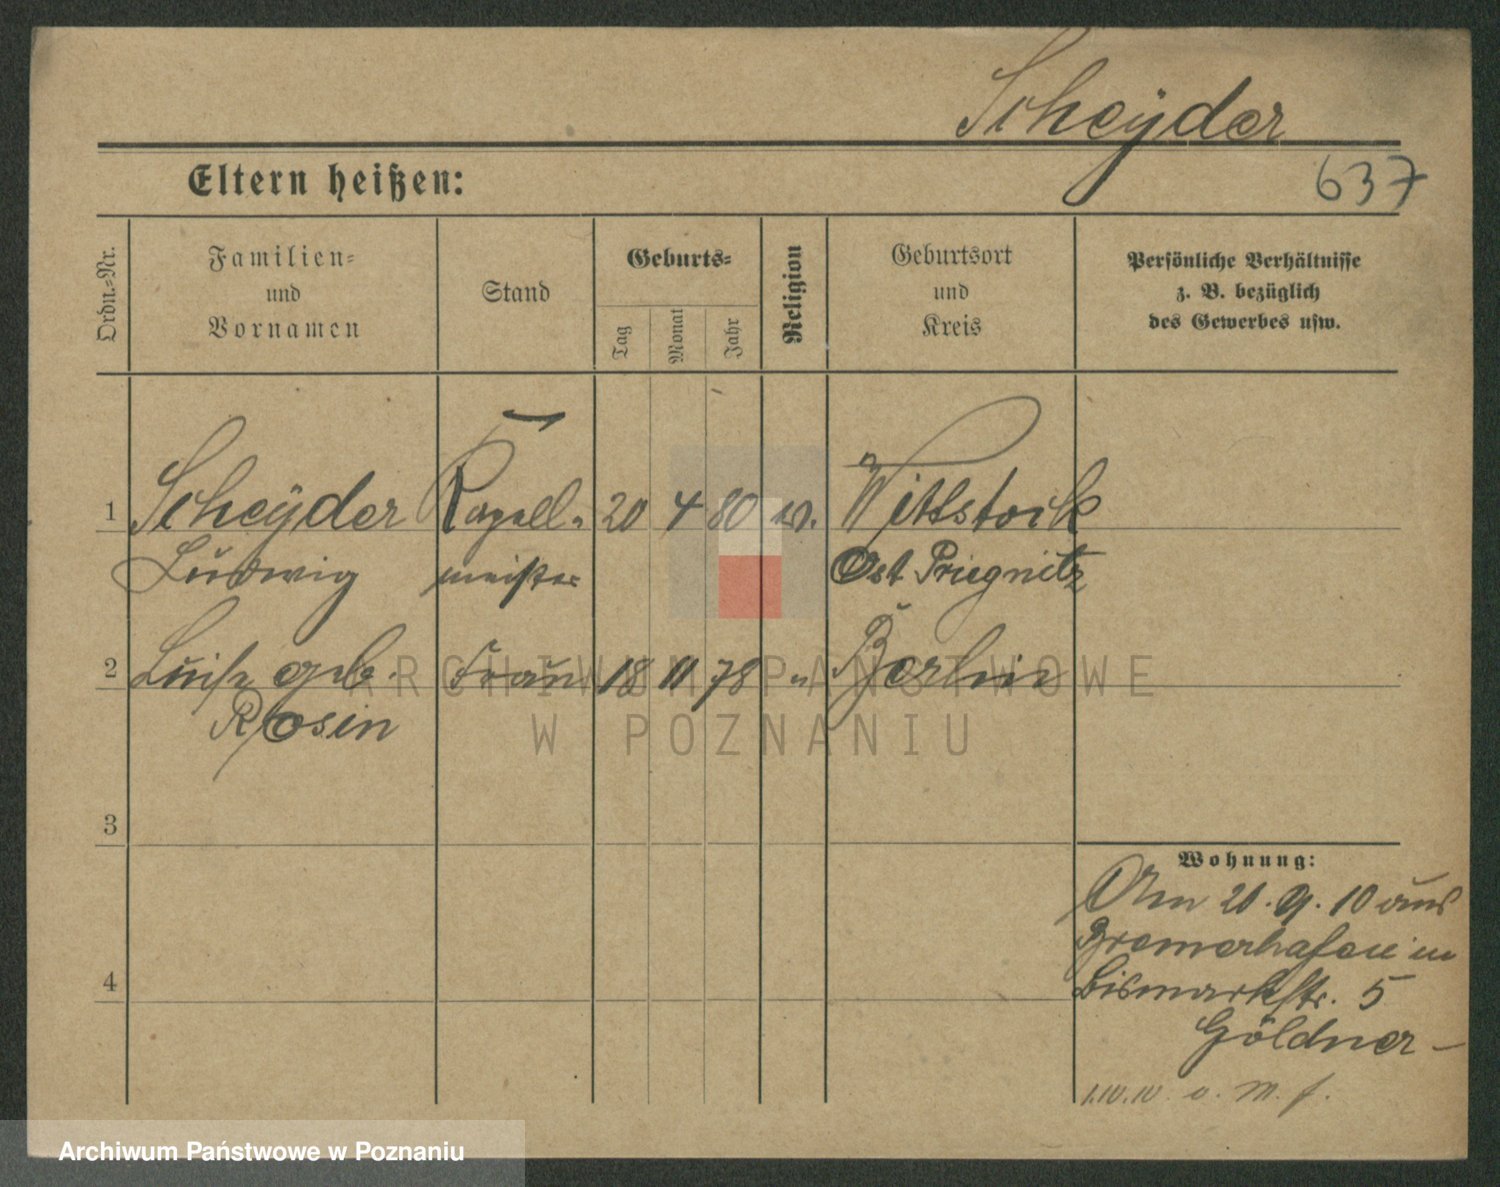 Scheÿder
637
Eltern heißen:
Ordn.-Nr.
Familien-
und
Vornamen
Stand
Geburts-
Tag
Monat
Jahr
Religion
Geburtsort
und
Kreis
Persönliche Verhältnisse
z. B. bezüglich
des Gewerbes usw.
1 Scheÿder Kapell- 20 4 80 ev. Wittstock
Ludwig meister Ost Priegnitz
2 Luise geb. Frau 18 11 78 " Berlin
Rosin
3
4
Wohnung:
Am 20. 9. 10 aus
Bremerhafen in
Bismarkstr. 5
Göldner
ARCHIWUM PAŃSTWOWE
W POZNANIU
Archiwum Państwowe w Poznaniu